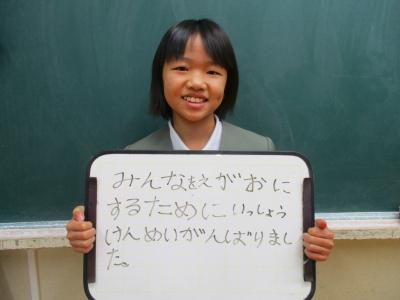 みんなをえがおに
するためにいっしょう
けんめいがんばりまし
た。